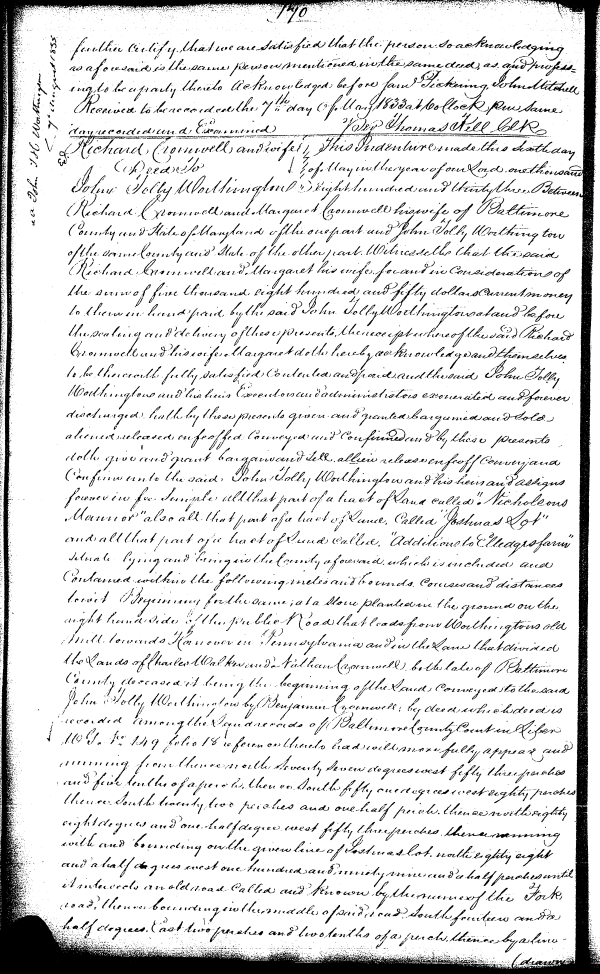 170
further certify that we are satisfied that the person so acknowledging
as aforesaid is the same person mentioned in the same deed, as, and profess-
ing to be a party thereto Acknowledged before Saml Pickering, John Mitchell
Received to be recorded the 7th day of May 1833 at 6 oClock pm same
day recorded and Examined Thomas Kell Clk
Richard Cromwell and wife This Indenture made this sixth day
Deed To of May in the year of our Lord one thousand
John Tolly Worthington eight hundred and thirty three Between
Richard Cromwell and Margaret Cromwell his wife of Baltimore
County and State of Maryland of the one part and John Tolly Worthington
of the same County and State of the other part. Witnesseth that the said
Richard Cromwell and Margaret his wife, for and in Considerations of
the sum of five thousand eight hundred and fifty dollars current money
to them in hand paid by the said John Tolly Worthington at and before
the sealing and delivery of these presents, the receipt whereof the said Richard
Cromwell and his wife Margaret doth hereby acknowledge and themselves
to be therewith fully satisfied Contented and paid and the said John Tolly
Worthington and his heirs Executors and administrators exonerated and forever
discharged hath by these presents given and granted bargained and Sold
aliened released enfeoffed Conveyed and Confirmed and by these presents
doth give and grant bargain and Sell alien release enfeoff Convey and
Confirm unto the said John Tolly Worthington and his heirs and assigns
forever in fee Simple all that part of a tract of Land called "Nicholsons
Mannor" also all that part of a tract of Land, Called "Joshuas Lot"
and all that part of a tract of Land Called, "Addition to Elledges farm"
situate lying and being in the County aforesaid which is included and
Contained within the following metes and bounds Courses and distances
to wit Beginning for the same, at a Stone planted in the ground on the
right hand side of the public Road that leads from Worthingtons old
mill towards Hanover in Pennsylvania and in the Lane that divided
the Lands of Charles Walker and Nathan Cromwell both late of Baltimore
County deceased it being the beginning of the Land Conveyed to the said
John Tolly Worthington by Benjamin Cromwell, by deed which deed is
recorded among the Land records of Baltimore County Court in Liber
W G. No 149 folio 18 reference thereto had will more fully appear and
running from thence north Seventy Seven degrees west fifty three perches
and five tenths of a perch, thence South fifty one degrees west eighty perches
thence South twenty two perches and one half perch thence north eighty
eight degrees and one half degree west fifty three perches thence running
with and bounding on the given line of Joshuas lot. north eighty eight
and a half degrees west one hundred and ninety nine and a half perches until
it intersects an old road Called and Known by the name of the Fork
road, thence bounding in the middle of said road South fourteen and a
half degrees. East two perches and two tenths of a perch, thence by a line
(drawn